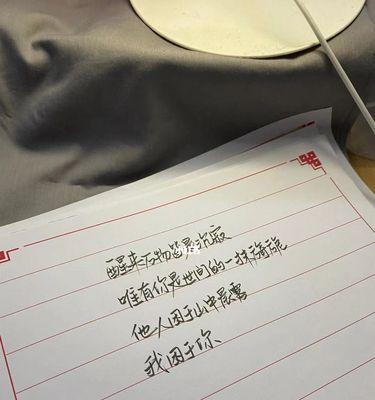 醒来万物皆是沉寂
唯有你是世间的一抹旖旎
他人困于山中晨雾
我困于你